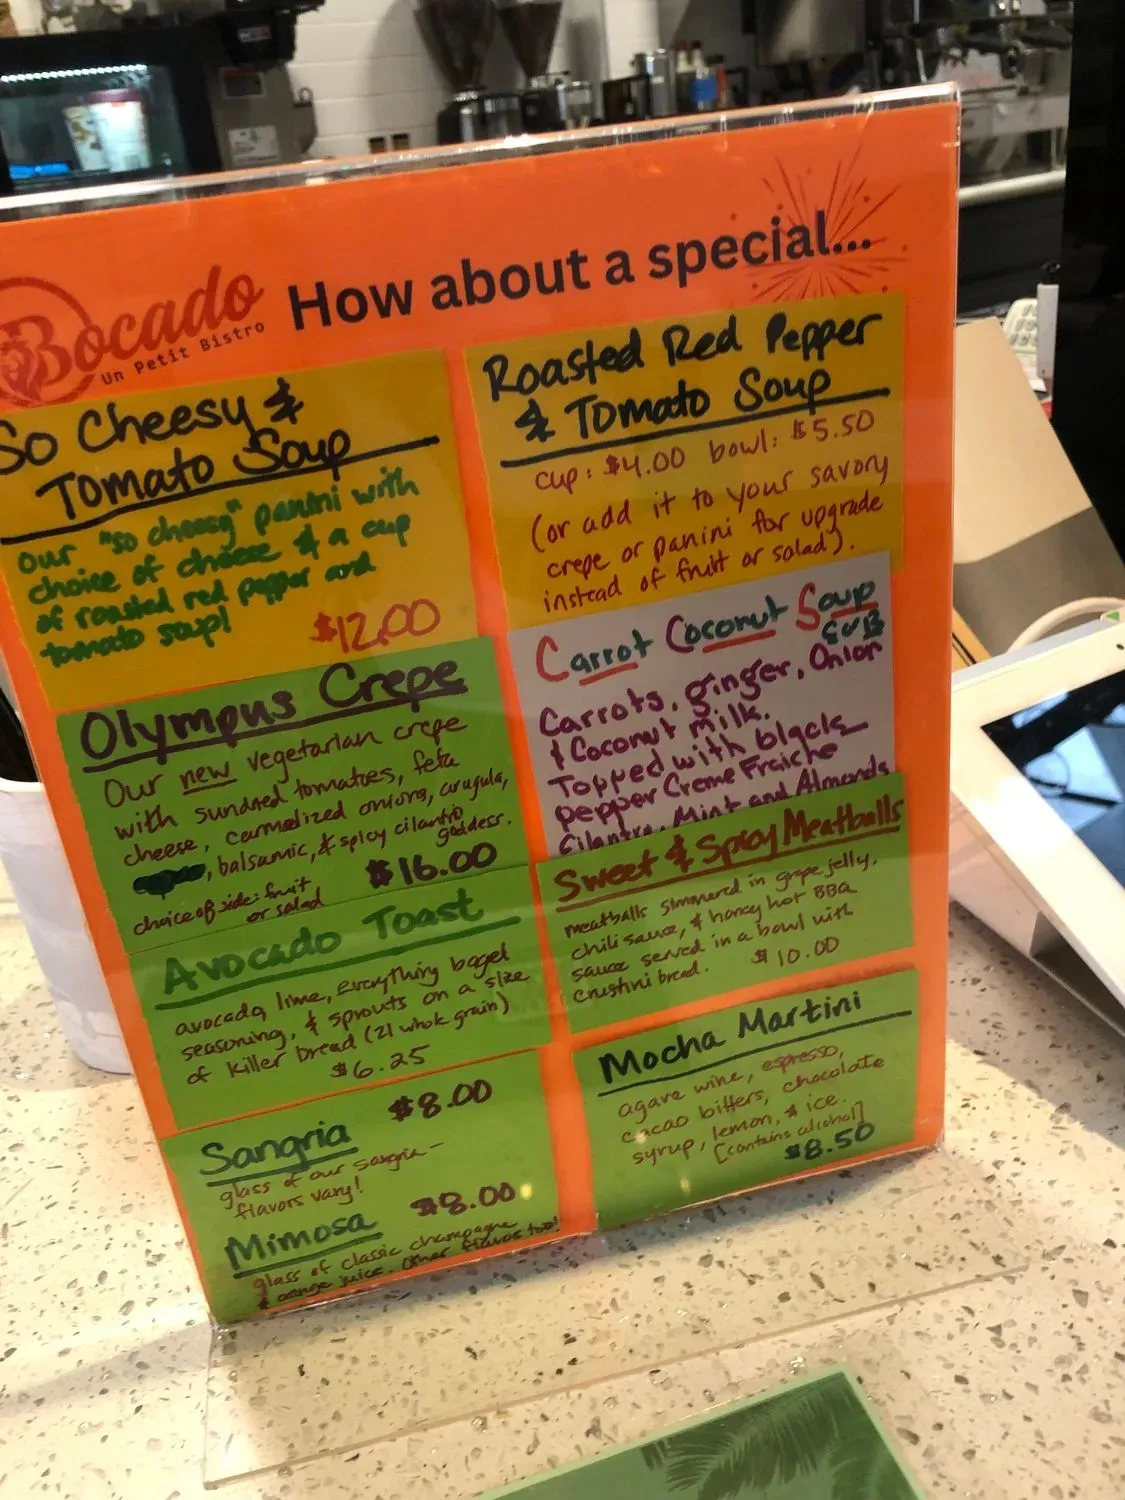 Bocado
Un Petit Bistro
How about a special...
So Cheesy &
Tomato Soup
Our "so cheesy" panini with
choice of cheese & a cup
of roasted red pepper and
tomato soup!
$12.00
Olympus Crepe
Our new vegetarian crepe
with sundried tomatoes, feta
cheese, carmelized onions, arugula,
, balsamic, & spicy cilantro
goddess.
$16.00
choice of side: fruit
or salad
Avocado Toast
avocado, lime, everything bagel
seasoning, & sprouts on a slice
of killer bread (21 whole grain)
$6.25
Sangria $8.00
glass of our sangria-
flavors vary!
Mimosa $8.00
glass of classic champagne
& orange juice. Other flavors too!
Roasted Red Pepper
& Tomato Soup
cup: $4.00 bowl: $5.50
(or add it to your savory
crepe or panini for upgrade
instead of fruit or salad).
Carrot Coconut Soup
Carrots, ginger, Onion
& Coconut milk.
Topped with black
pepper Creme Fraiche
Cilantro, Mint and Almonds
Sweet & Spicy Meatballs
meatballs simmered in grape jelly,
chili sauce, & honey hot BBQ
sauce served in a bowl with
crustini bread. $10.00
Mocha Martini
agave wine, espresso,
cacao bitters, chocolate
syrup, lemon, & ice.
[contains alcohol]
$8.50